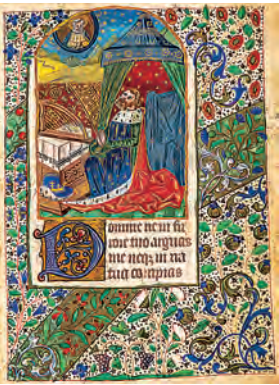 Domine ne in fu
rore tuo arguas
me neqz in ira
tua corripias